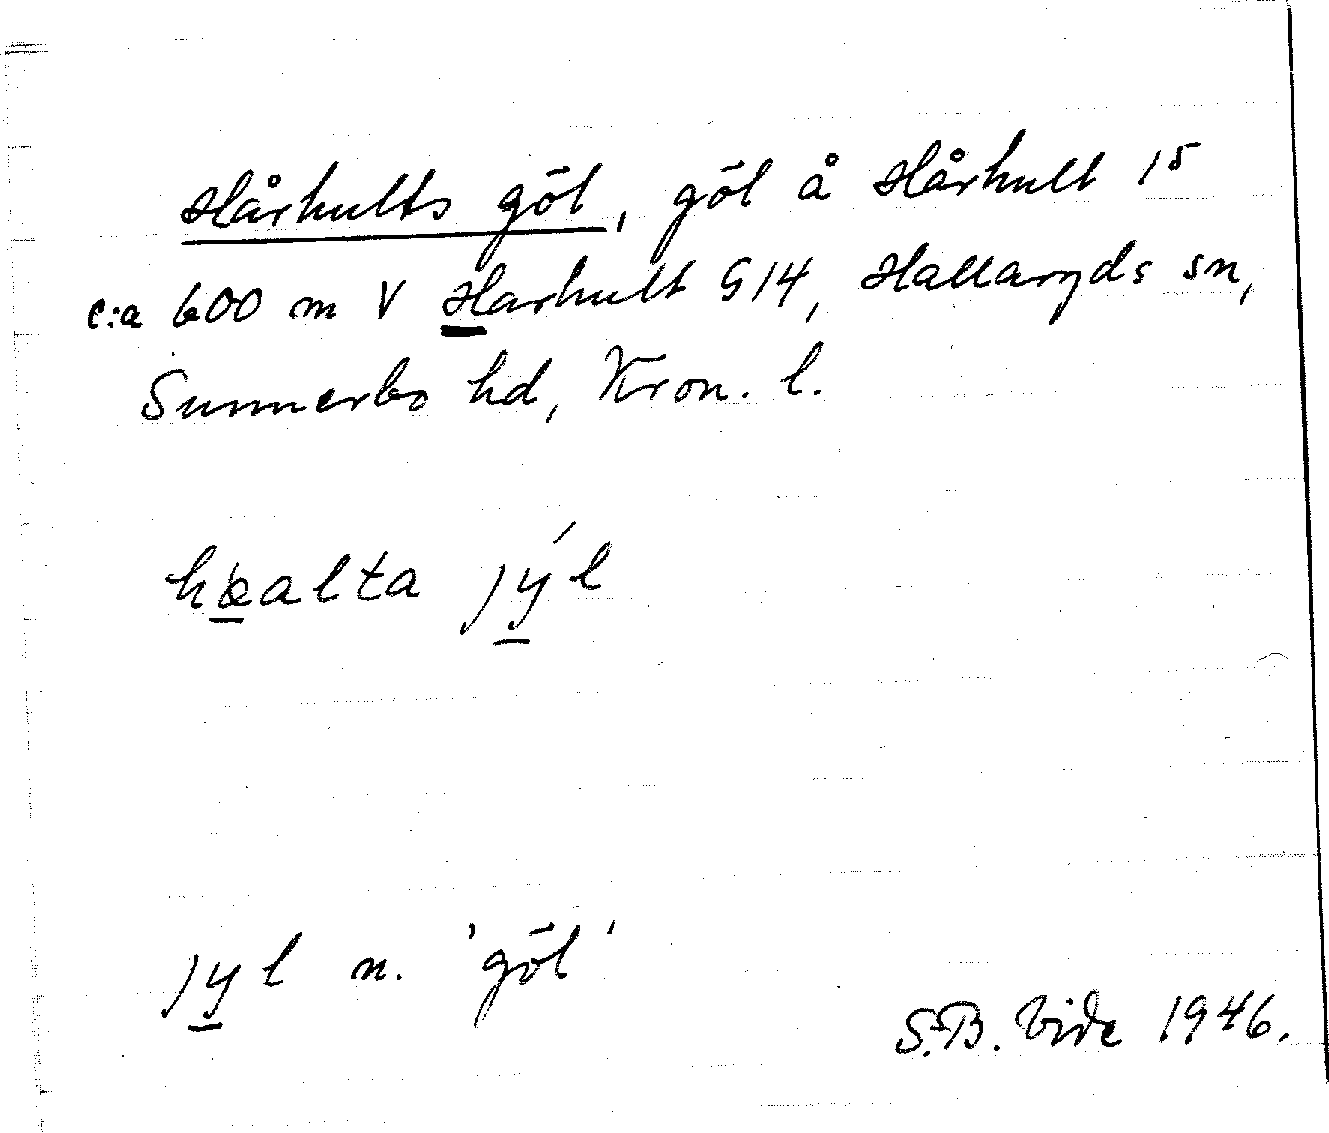 Hårhults göl, göl å Hårhult 15
c:a 600 m V Harhult G14, Hallaryds sn,
Sunnerbo hd, Kron. l.
hæalta jýl
jyl n. 'göl'
S.B. Vide 1946.